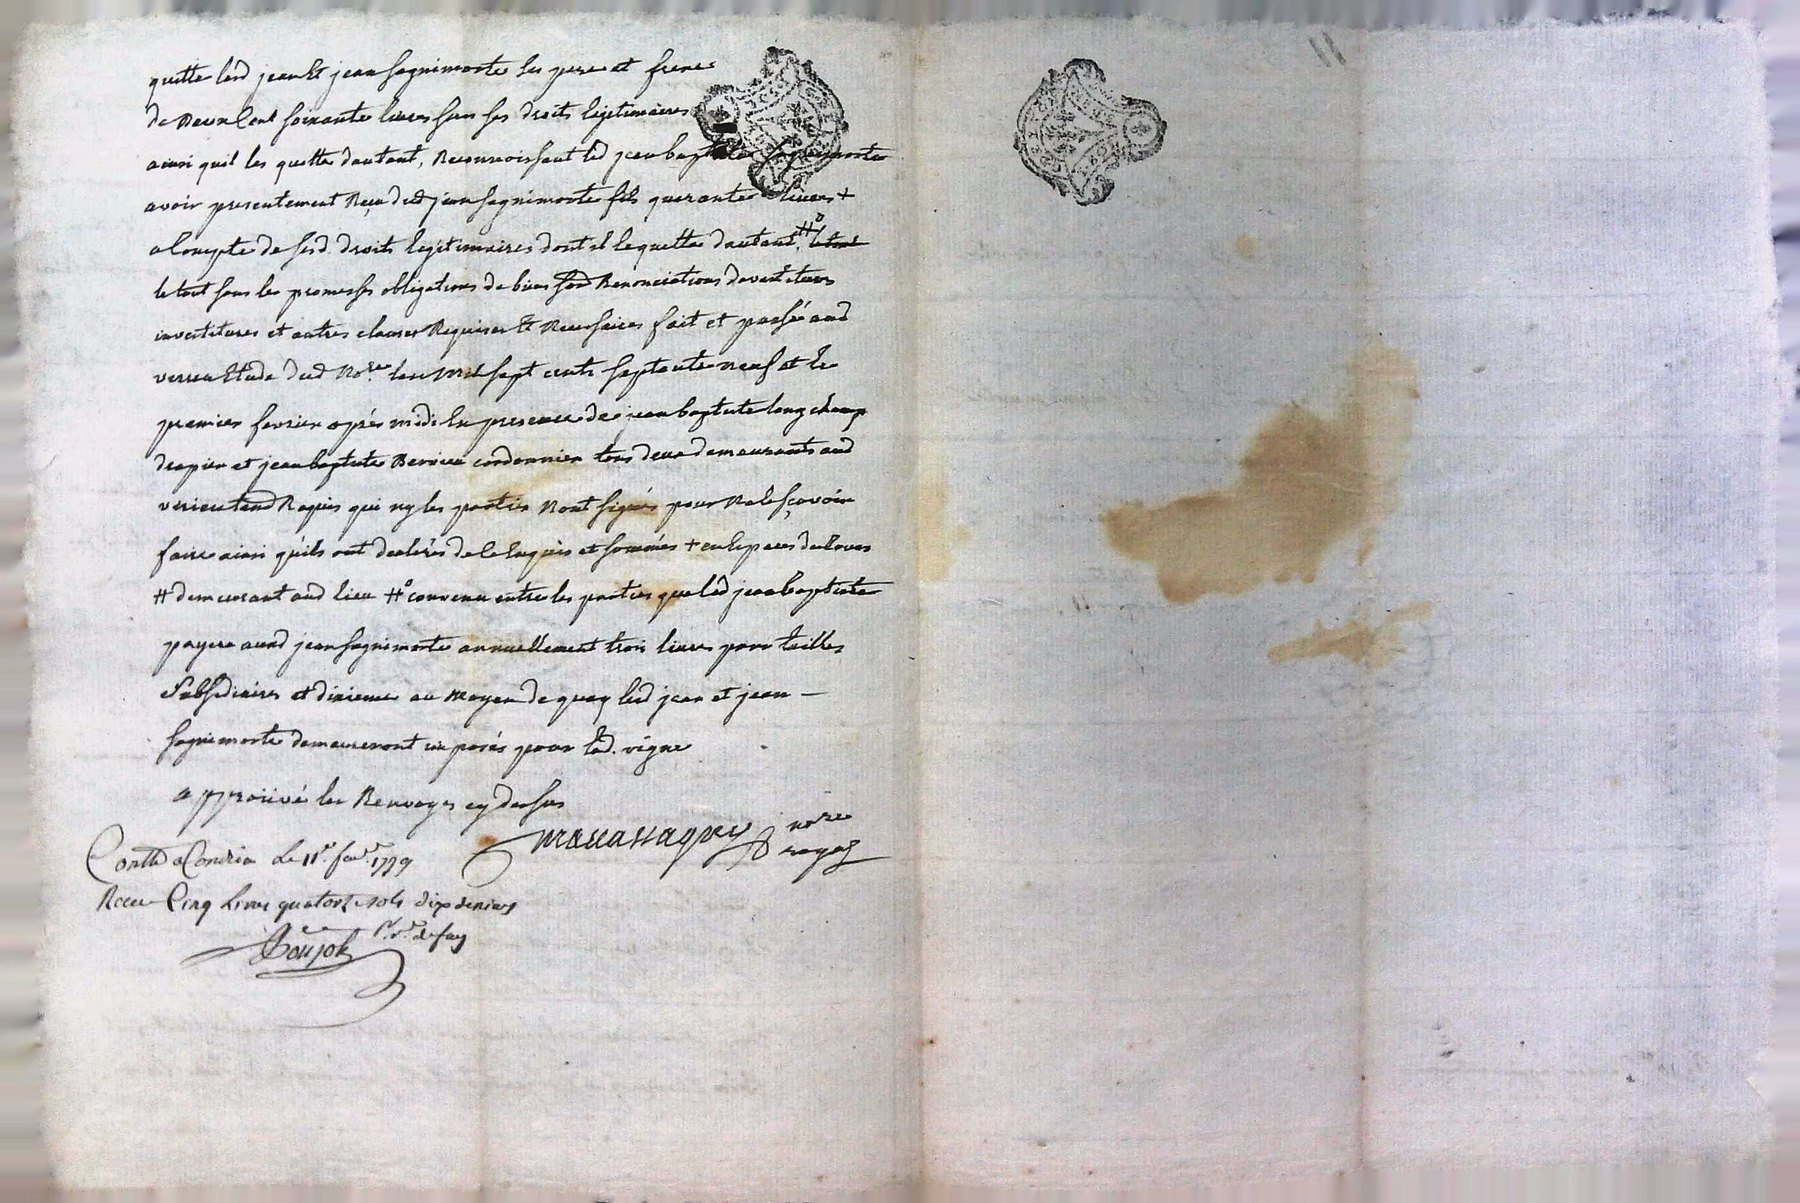 quitte led jean et jean sagnimorte ses pere et frere
de deux cent soixante livres sur ses droits legitimaires
ainsi quil les quitte dautant, Reconnoissant led jean baptiste sagnimorte
avoir presentement Reçu dud jean sagnimorte fils quarante livres +
a Compte de sesd. droits legitimaires dont il le quitte dautant, #° le tout
le tout sous les promesses obligations de biens Renonciations
investitures et autres clauses Requises et Necessaires fait et passé aud
verrieu Etude dud No.re lan mil sept cents septante neuf et le
premier fevrier après midi En presence de jean baptiste longchamp
drapier et jean baptiste cordonnier tous deux demeurants aud
Requis qui ny les parties Nont signés pour Ne le sçavoir
faire ainsi quils ont declarés de ce Enquis et sommés +
# demeurant aud lieu #° convenu entre les parties que led jean baptiste
payera aud jean sagnimorte annuellement trois livres pour tailles
subsidiaires et dixieme au moyen de quoy led jean et jean —
sagnimorte demeureront imposés pour lad. vigne
approuvé les Renvoyes cy dessus
nore
royal
Contlé a Condrieu Le 11e. fevr. 1779
Reçu Cinq livres quatorze sols dix deniers
Boujot